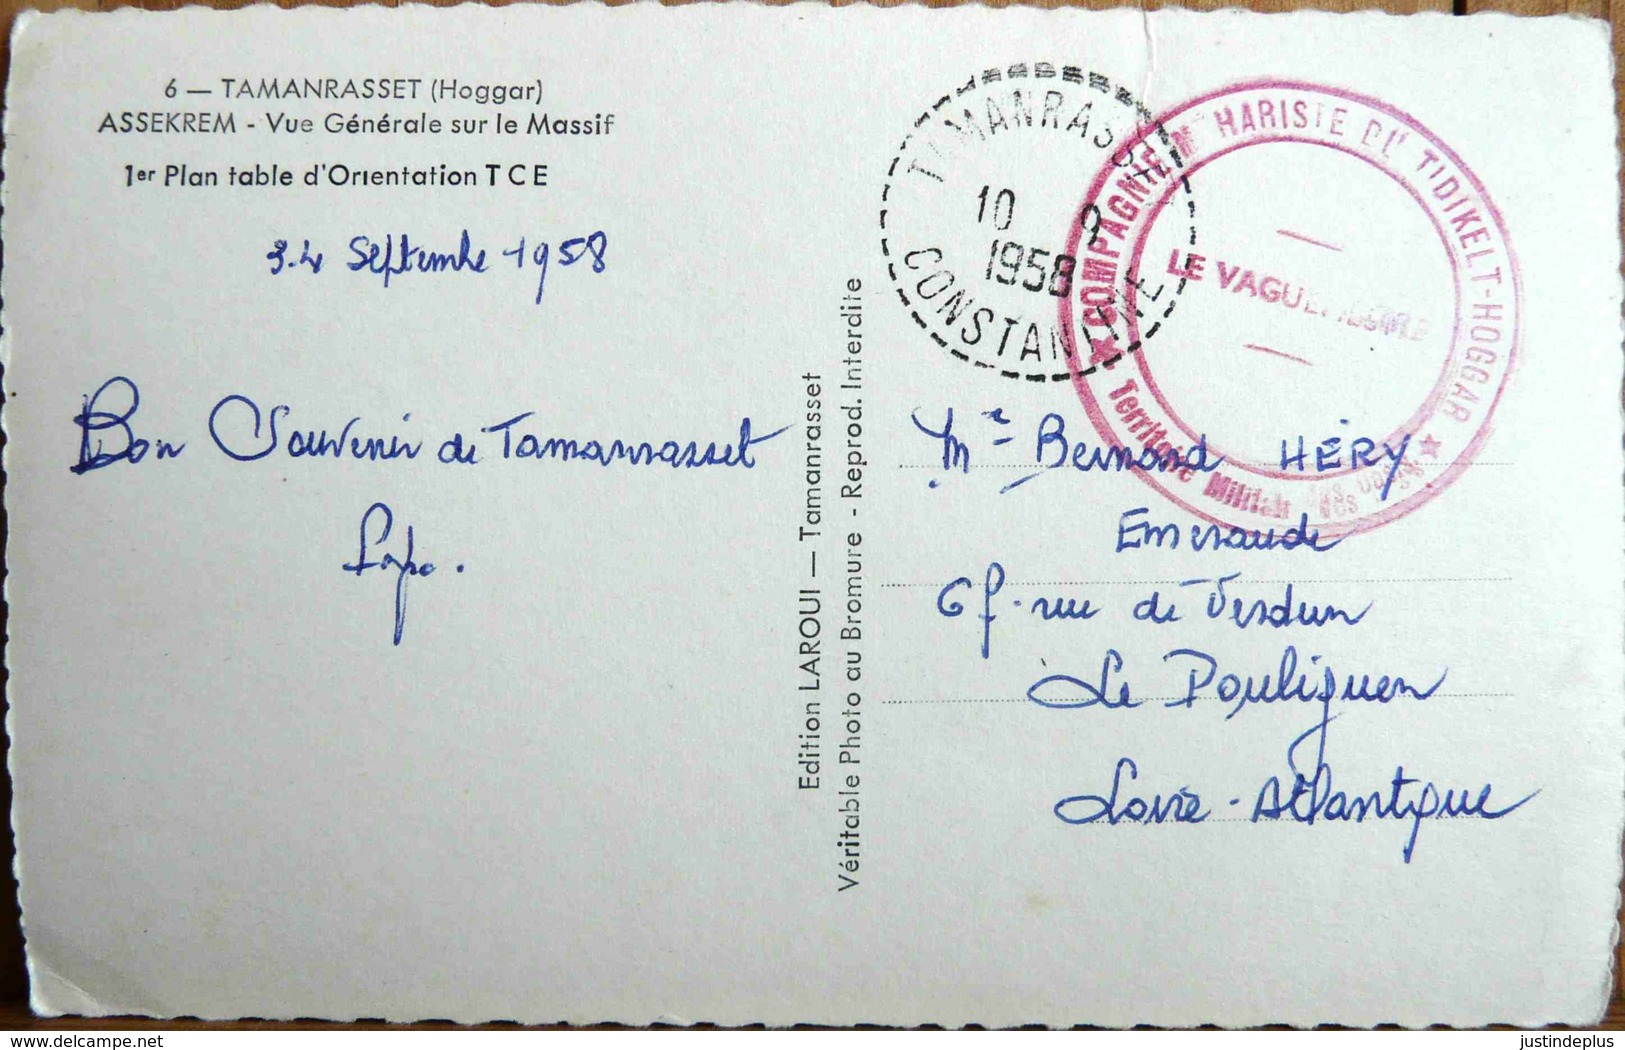 6 — TAMANRASSET (Hoggar)
ASSEKREM - Vue Générale sur le Massif
1er Plan table d'Orientation T C E
3.4 Septembre 1958
Bon Souvenir de Tamanrasset
Edition LAROUI — Tamanrasset
Véritable Photo au Bromure - Reprod. Interdite
TAMANRASSET
10 9
1958
CONSTANTINE
COMPAGNIE MEHARISTE DU TIDIKELT-HOGGAR
LE VAGUEMESTRE
Territoire Militaire des Oasis
Mr Bernard HÉRY
Emeraude
rue de Verdun
Le Pouliguen
Loire-Atlantique
justindeplus